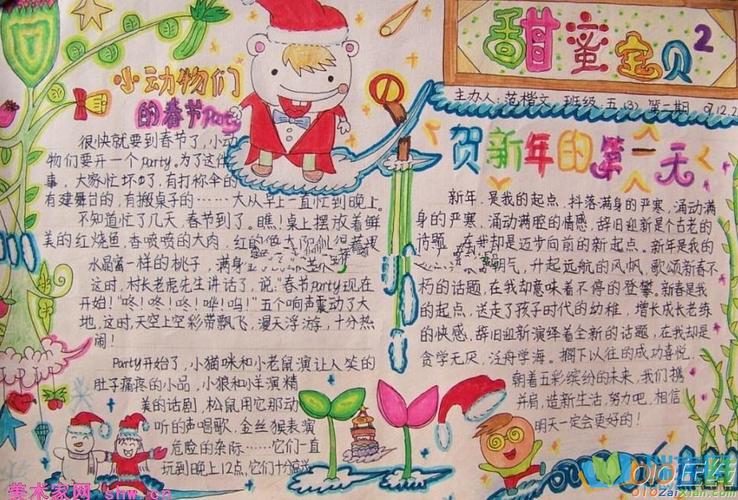 甜蜜宝贝 2
主办人:范楷文 班级:五(3) 第一期
小动物们
的春节Party
很快就要到春节了,小动
物们要开一个party。为了这件
事,大家忙坏了,有打称伞的
有建舞台的,有搬桌子的……大从早上一直忙到晚上。
不知道忙了几天,春节到了。瞧!桌上摆放着鲜
美的红烧鱼,香喷喷的大肉,红的
水晶富一样的桃子,满身
这时,村长老虎先生讲话了,说:“春节Party现在
开始!”咚!咚!咚!哗!呜!”五个响声震动了大
地,这时,天空上空彩带飘飞,漫天浮游,十分热
闹!
Party开始了,小猫咪和小老鼠演让人笑的
肚子痛疼的小品,小狼和小羊演精
美的话剧,松鼠用它那动
听的声唱歌,金丝猴表演
危险的杂际……它们一直
玩到晚上12点,它们十分
贺新年的第一天
新年,是我的起点,抖落满身的严寒,涌动满
身的严寒,涌动满腔的情感,辞旧迎新是个古老的
话题,在我却是迈步向前的新起点。新年是我的
朝气,升起远航的风帆,歌颂新春不
朽的话题,在我却意味着不停的登攀。新春是我
的起点,送走了孩子时代的幼稚,增长成长老练
的快感,辞旧迎新演绎着全新的话题,在我却是
贪学无厌,泛舟学海。搁下以往的成功喜悦,
朝着五彩缤纷的未来,我们携
并肩,造新生活,努力吧,相信
明天一定会更好的!
美术家网 shw.cn
010在线
010zaixian.com